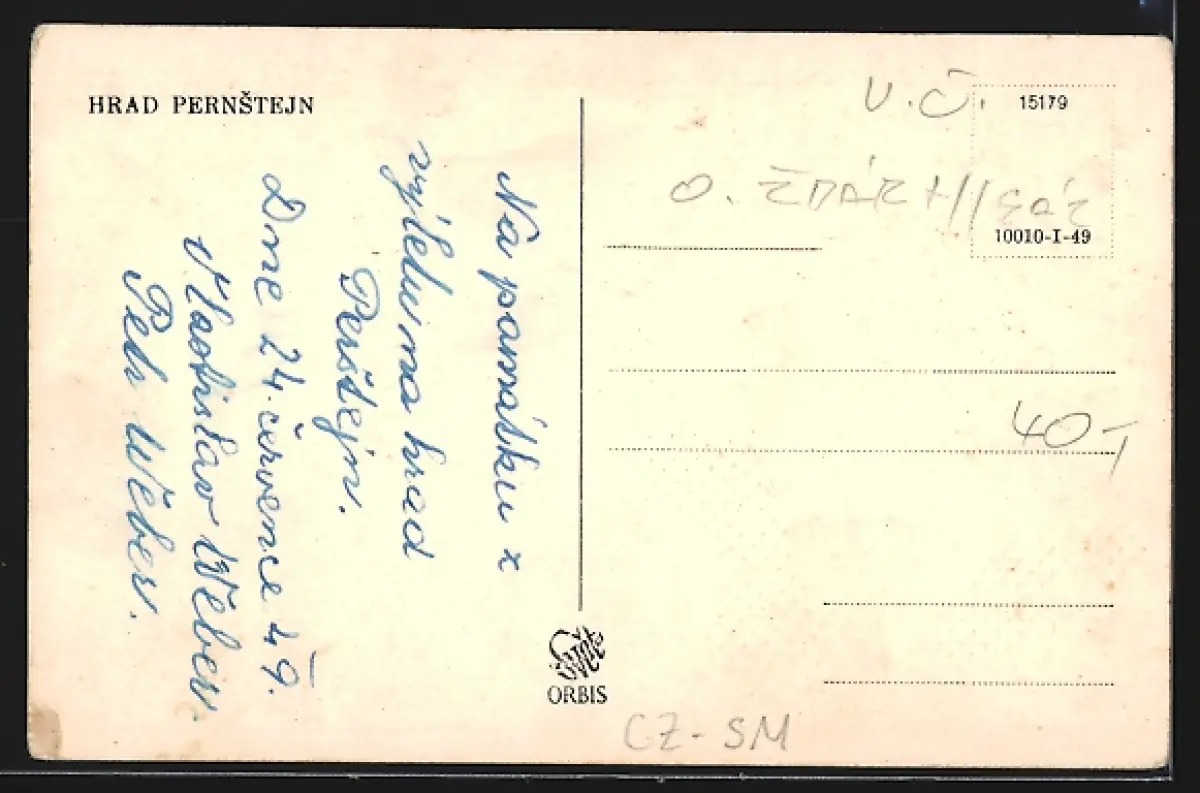 HRAD PERNŠTEJN
Na památku x
výletu na hrad
Perštejn.
Dne 24. července 49.
Vlastislav Wěber.
Petr Wěber.
V. Č.
15179
O. ŽĎÁR
10010-I-49
40,-
ORBIS
CZ-SM